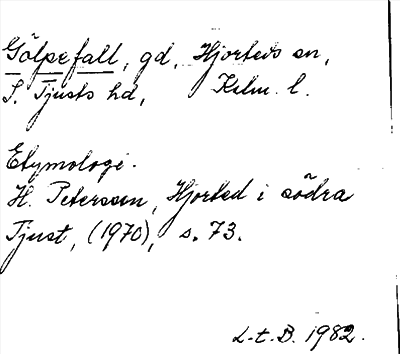 Gölpefall, gd, Hjorteds sn,
S. Tjusts hd, Kalm. l.
Etymologi.
H. Petersson, Hjorted i södra
Tjust, (1970), s. 73.
L-t. B. 1982.